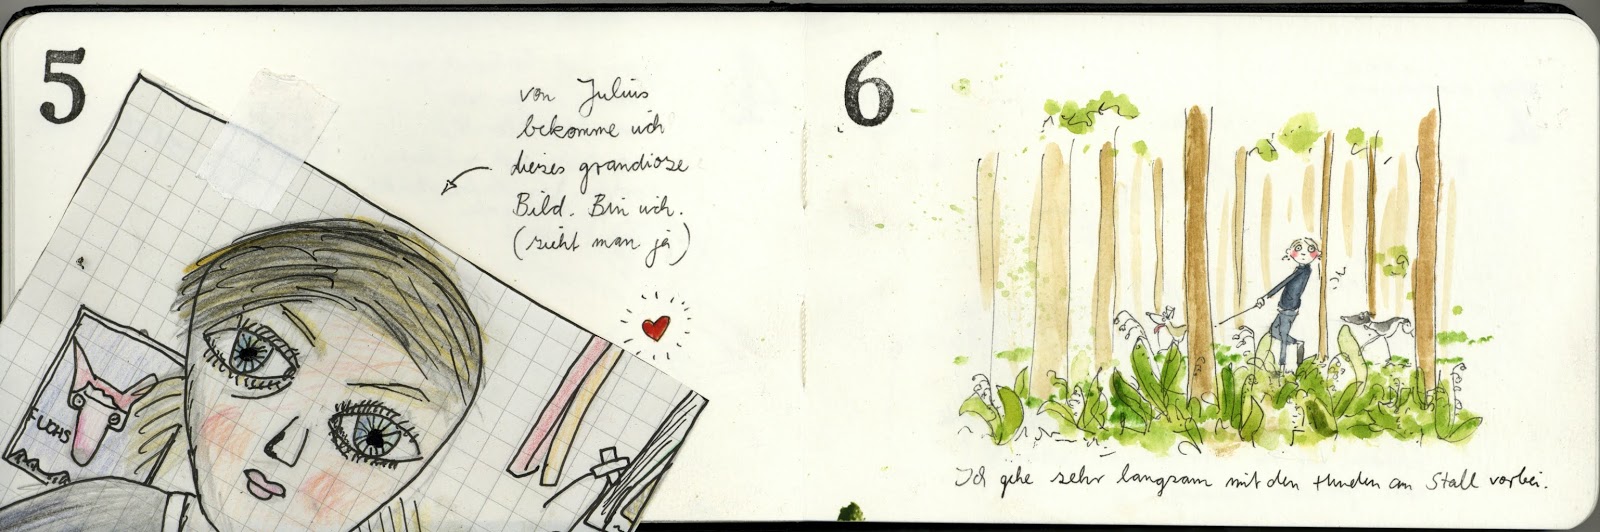 5
von Julius
bekomme ich
dieses grandiose
Bild. Bin ich.
(sieht man ja)
FUCHS
6
Ich gehe sehr langsam mit den Hunden am Stall vorbei.